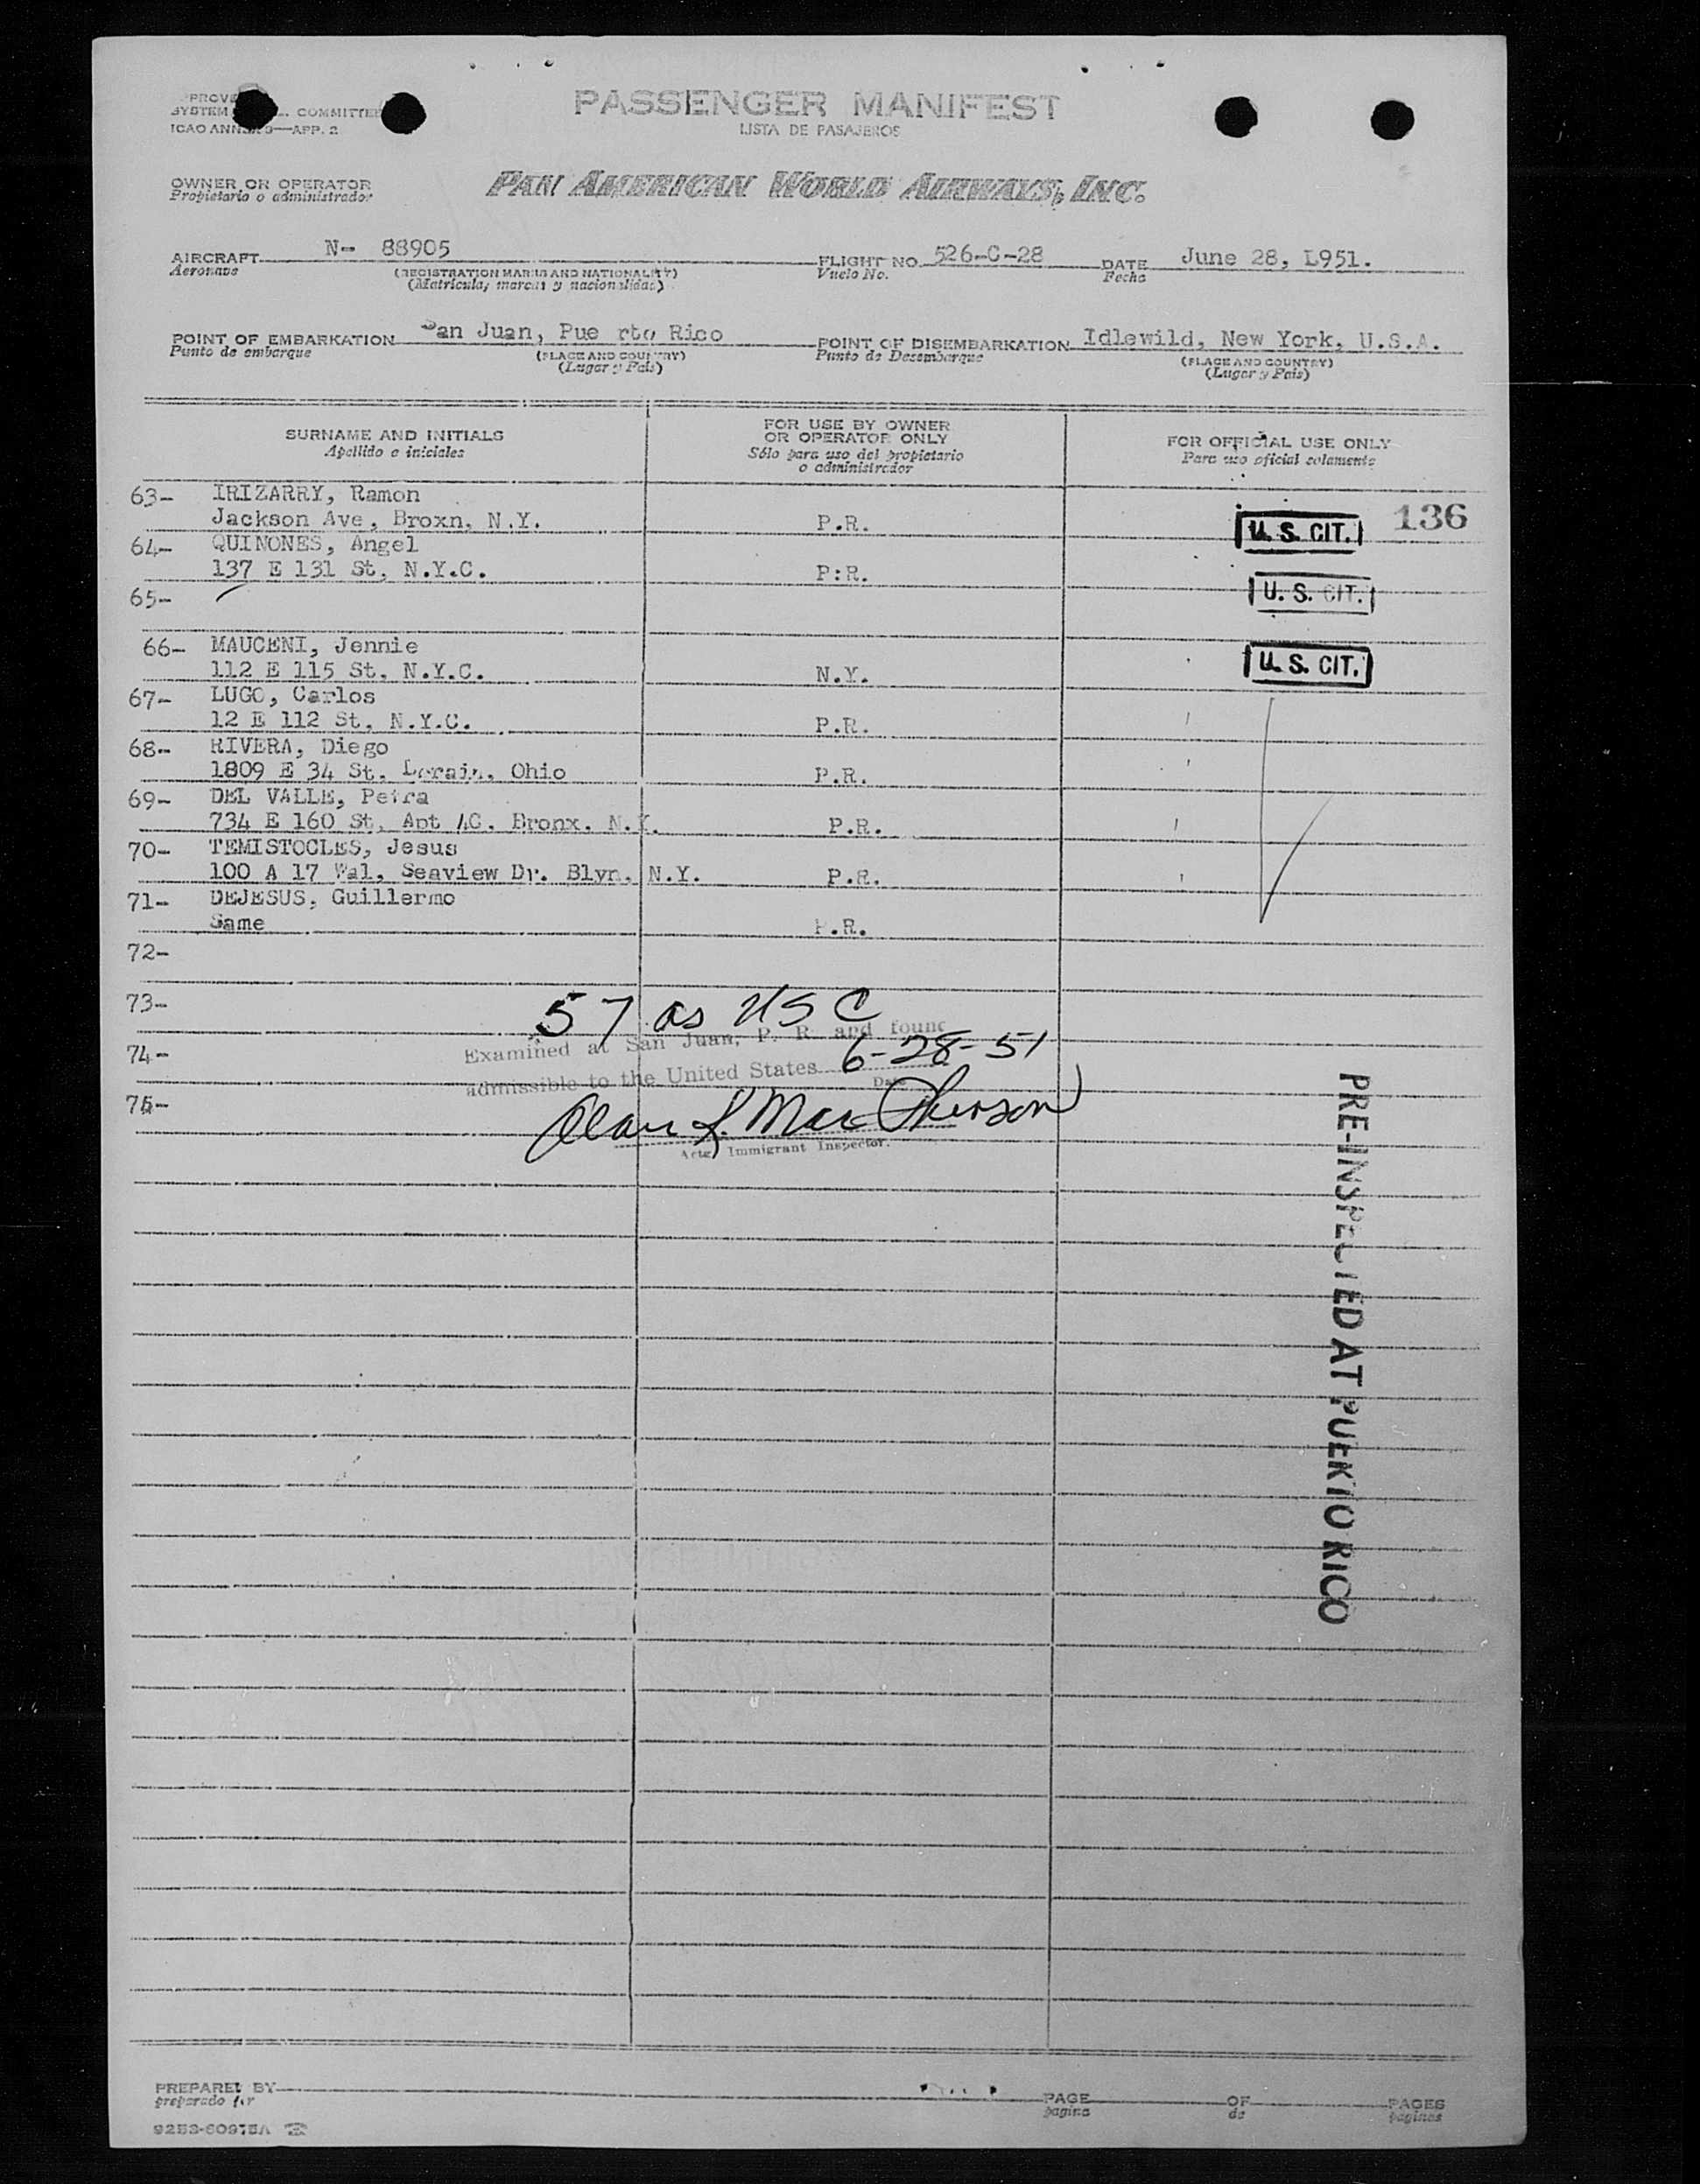 SYSTEM COMMITTEE
PASSENGER MANIFEST
LISTA DE PASAJEROS
OWNER OR OPERATOR
Propietario o administrador
PAN AMERICAN WORLD AIRWAYS, INC.
AIRCRAFT N- 88905 FLIGHT NO. 526-C-28 DATE June 28, L951.
Aeronave (REGISTRATION MARKS AND NATIONALITY) Vuelo No. Fecha
(Matricula, marcas y nacionalidad)
POINT OF EMBARKATION San Juan, Pue rto Rico POINT OF DISEMBARKATION Idlewild, New York, U.S.A.
Punto de embarque (PLACE AND COUNTRY) Punto de Desembarque (PLACE AND COUNTRY)
(Lugar y Pais) (Lugar y Pais)
SURNAME AND INITIALS FOR USE BY OWNER OR OPERATOR ONLY FOR OFFICIAL USE ONLY
Apellido e iniciales Sólo para uso del propietario o administrador Para uso oficial solamente
63- IRIZARRY, Ramon
Jackson Ave, Broxn, N.Y. P.R. U. S. CIT. 136
64- QUINONES, Angel
137 E 131 St, N.Y.C. P:R. U. S. CIT.
65-
66- MAUCENI, Jennie
112 E 115 St, N.Y.C. N.Y. U. S. CIT.
67- LUGO, Carlos
12 E 112 St, N.Y.C. P.R.
68- RIVERA, Diego
1809 E 34 St, Lorain, Ohio P.R.
69- DEL VALLE, Petra
734 E 160 St, Apt 4C, Bronx, N.Y. P.R.
70- TEMISTOCLES, Jesus
100 A 17 Wal, Seaview Dr. Blyn, N.Y. P.R.
71- DEJESUS, Guillermo
Same P.R.
72-
73-
57 as USC
74-
Examined at San Juan, P. R. and found
admissible to the United States 6-28-51
Date
75-
Alan L. MacPherson
Actg Immigrant Inspector.
PRE-INSPECTED AT PUERTO RICO
PREPARED BY PAGE OF PAGES
preparado por pagina de paginas